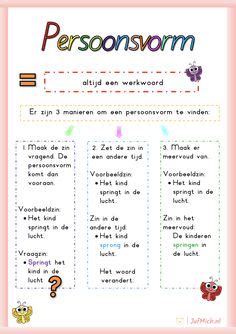 Persoonsvorm
= altijd een werkwoord
Er zijn 3 manieren om een persoonsvorm te vinden:
1. Maak de zin
vragend. De
persoonsvorm
komt dan
vooraan.
Voorbeeldzin:
• Het kind
springt in
de lucht.
Vraagzin:
• Springt het
kind in de
lucht
?
2. Zet de zin in
een andere tijd.
Voorbeeldzin:
• Het kind
springt in
de lucht.
Zin in de
andere tijd:
• Het kind
sprong in de
lucht.
Het woord
verandert.
3. Maak er
meervoud van.
Voorbeeldzin:
• Het kind
springt in
de lucht.
Zin in het
meervoud:
De kinderen
springen in
de lucht.
JufMich.nl